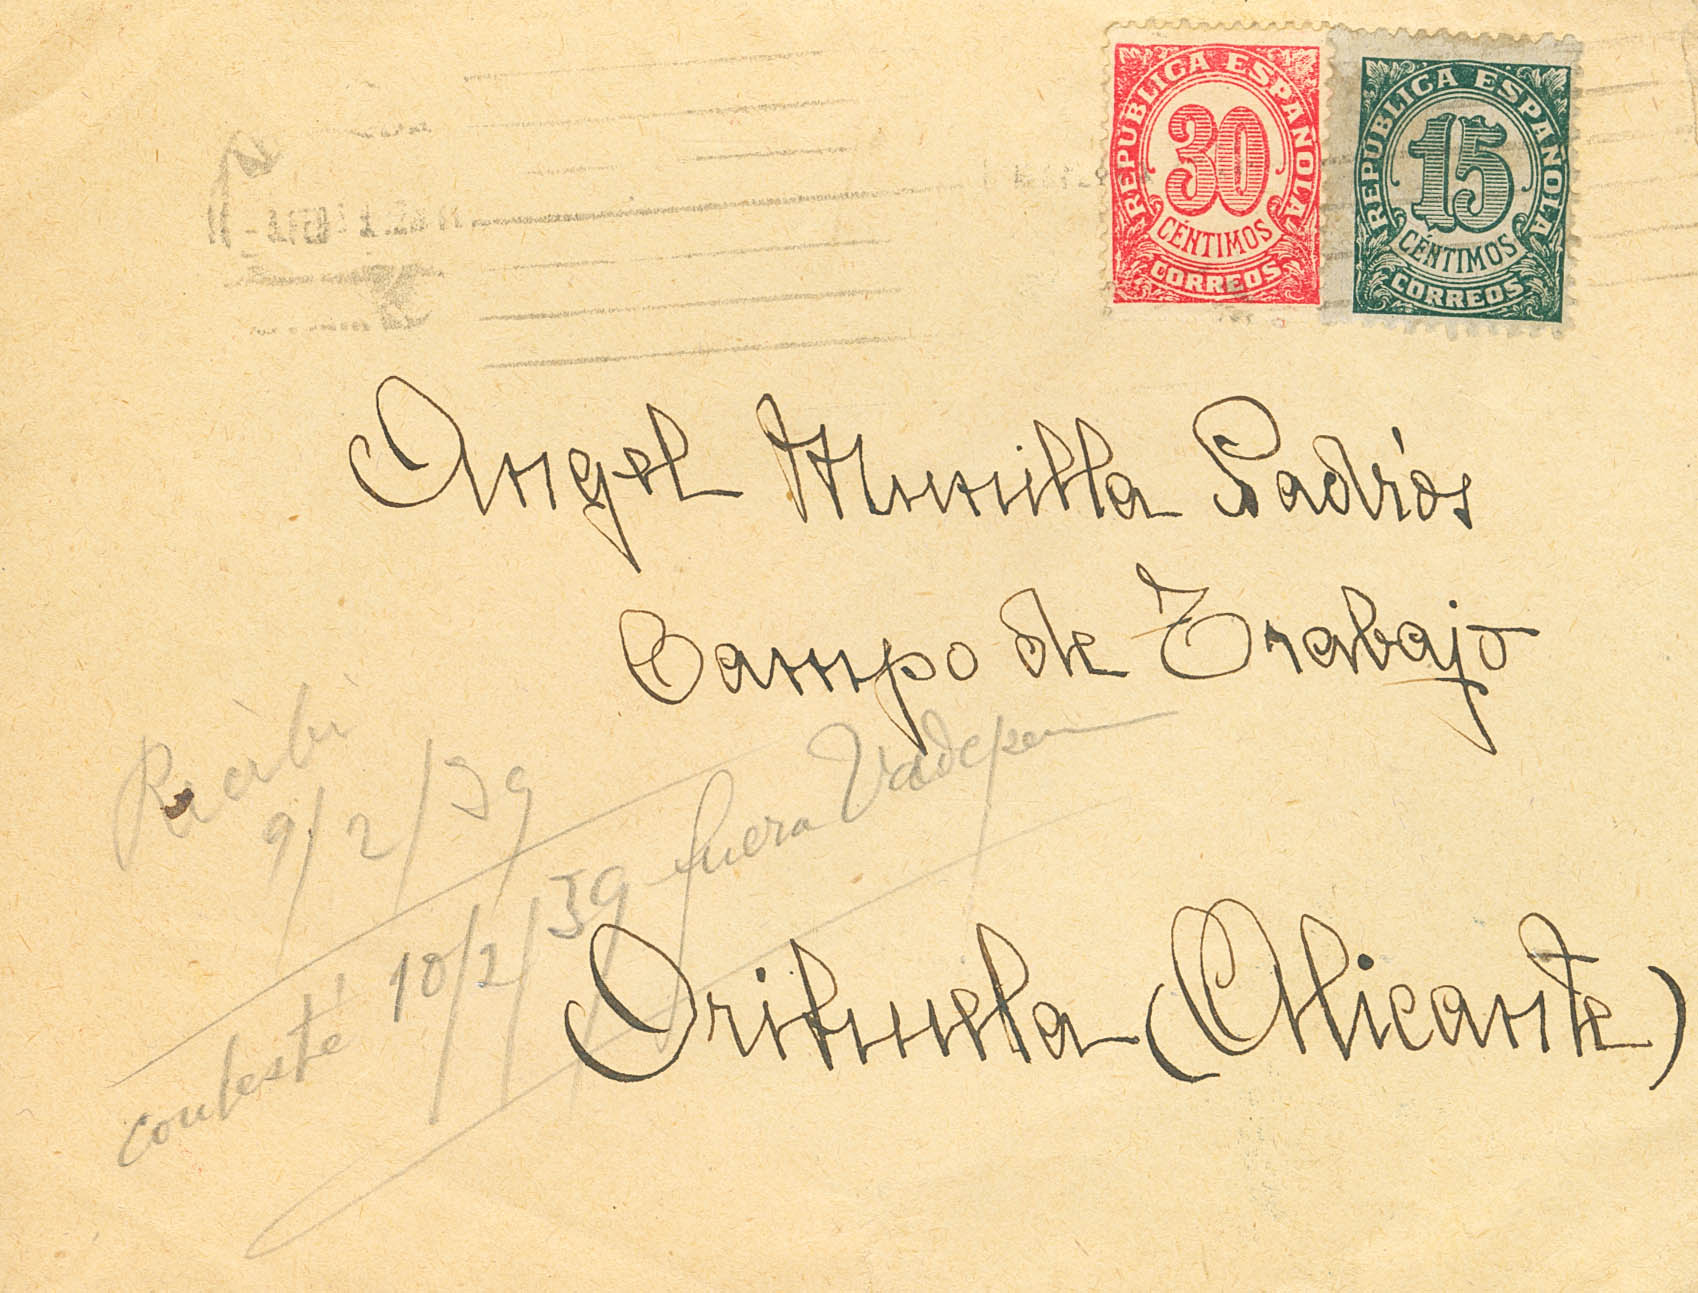 REPUBLICA ESPAÑOLA
30
CÉNTIMOS
CORREOS
REPUBLICA ESPAÑOLA
15
CÉNTIMOS
CORREOS
Angel Munilla Padrós
Campo de Trabajo
Recibí
9/2/39
contesté 10/2/39 fuera
Orihuela (Alicante)